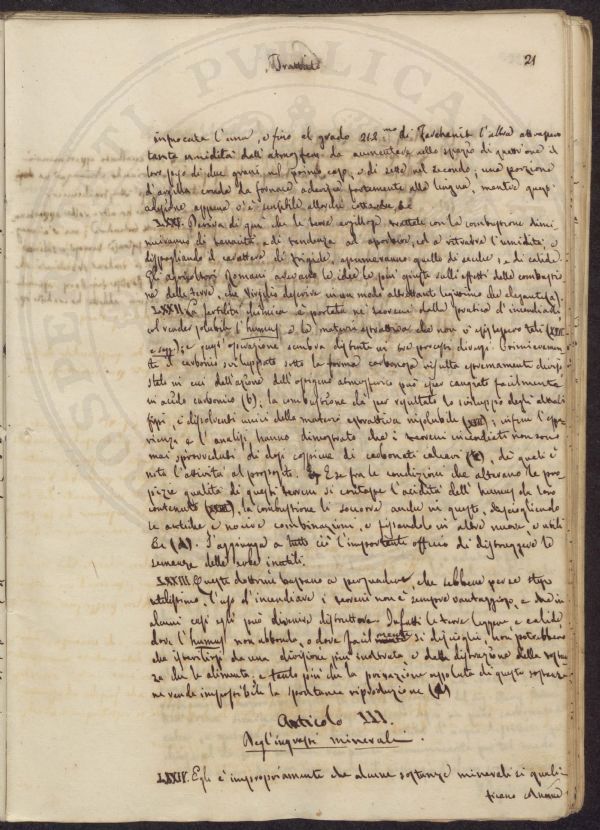 Trattato
21
infuocata l'una, e fino al grado 212 mo di Farhenit l'altra
tanta umidità dall'atmosfera da aumentare nello spazio di quattr'ore il
loro peso di due grani nel primo caso, e di sette nel secondo; una porzione
d'argilla cruda da fornace aderisce fortemente alla lingua, mentre quest'
adesione appena è sensibile allorché
LXXI. Deriva da qui che le terre argillose trattate con la combustione dimi
nuiranno di tenacità, e di tendenza ad assorbire, ed a ritenere l'umidità; e
spogliando il carattere di frigide, assumeranno quello di secche, e di calide.
Gli agricoltori Romani adevano le idee le più giuste sull'effetti della combustio
ne delle terre, che Virgilio descrive in un modo altrettanto che elegante (a).
LXXII. La fertilità chimica è portata ne' terreni dalla pratica d'incendiarli
col render solubile l'humus e le materie estrattive che non
e segg.); e quest'operazione sembra distinta in tre processi diversi. Primieramen
te il carbonio sviluppato sotto la forma carbonosa risulta estremamente diviso
stato in cui dall'azione dell'ossigeno atmosferico può esser cangiato facilmente
in acido carbonico (b), la combustione dà per risultato lo sviluppo degli alcali
fissi, e dissolventi unici della materia estrattiva insolubile; infine l'espe
rienza e l'analisi hanno dimostrato che i terreni incendiati non sono
mai sprovveduti di dosi copiose di carbonati calcari (c), di quali è
nota l'attività al proposito. E se fra le condizioni che alterano le pro
pizie qualità di questi terreni si contasse l'acidità dell'humus da loro
contenuto, la combustione li soccorre anche in questo, disciogliendo
le antiche e nocive combinazioni, e fissandole in altre nuove e utili
&c (d). S'aggiunga a tutto ciò l'importante officio di distruggere le
semenze delle erbe inutili.
LXXIII. Queste dottrine bastano a persuadere, che sebbene per se stesso
utilissimo, l'uso d'incendiare i terreni non è sempre vantaggioso, e che in
alcuni casi egli può divenire distruttore. Infatti le terre leggere e calide
dove l'humus non abbonda, o dove facilmente si discioglie, non potrebbero
che risentirsi da una divisione più inoltrata e dalla distruzione della sostan
za che le alimenta; e tanto più che la privazione assoluta di questa sostanza
ne rende impossibile la spontanea riproduzione (a)
Articolo III.
Degl'ingrassi minerali.
LXXIV. Egli è impropriamente che alcune sostanze minerali si quali=
ficano